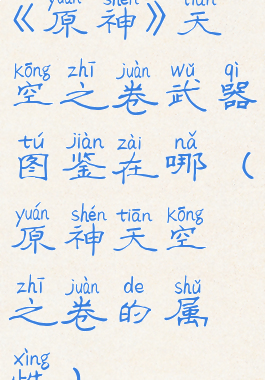 yuán shén tiān
《原神》天
kōng zhī juàn wǔ qì
空之卷武器
tú jiàn zài nǎ
图鉴在哪（
yuán shén tiān kōng
原神天空
zhī juàn de shǔ
之卷的属
xìng
性）